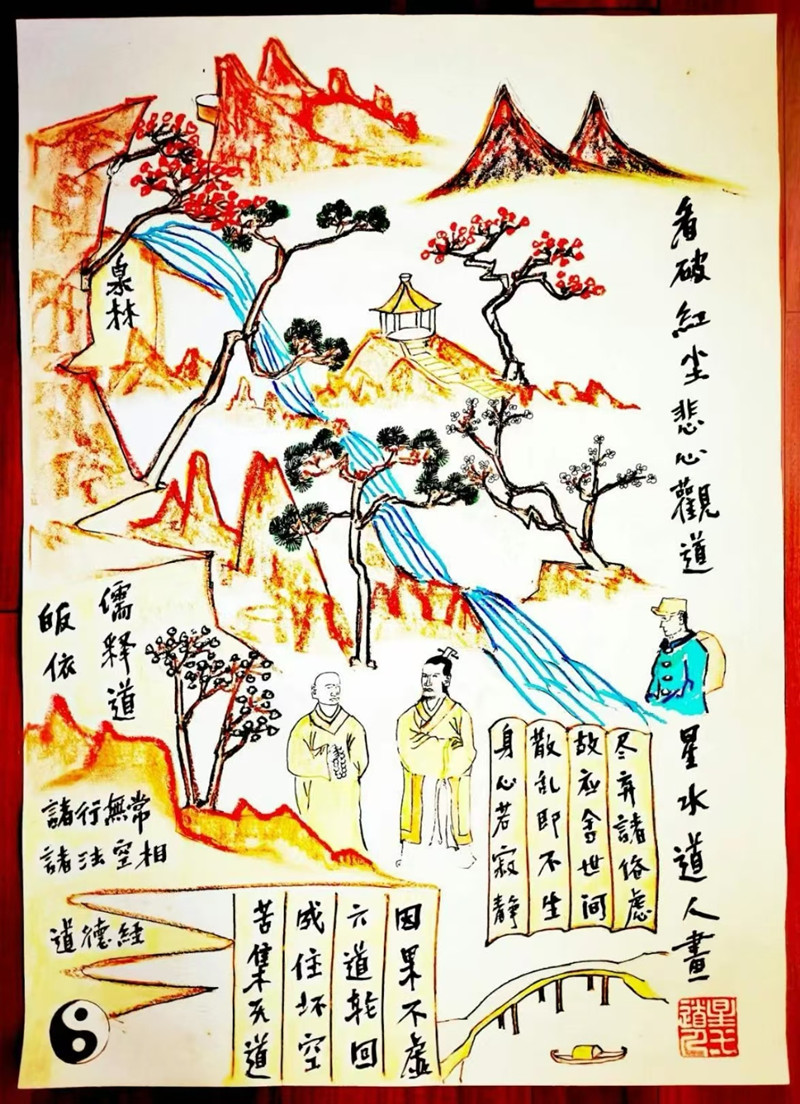 看破紅尘悲心觀道
星水道人畫
泉林
儒释道
皈依
諸行無常
諸法空相
道德經
身心若寂静
散乱即不生
故应舍世间
尽弃諸俗虑
苦集灭道
成住坏空
六道轮回
因果不虚